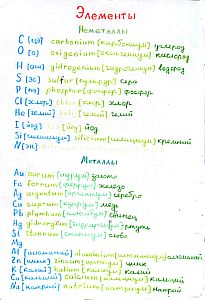 Элементы
Неметаллы
C [цэ] carbonium [карбониум] углерод
O [о] oxigenium [оксигениум] кислород
H [аш] gidrogenium [гидрогениум] водород
S [эс] sulfur [сульфур] сера
P [пэ] phosphor [фосфор] фосфор
Cl [хлор] chlor [хлор] хлор
He [гелий] heli [гелий] гелий
I [йод] йод
silicium [силициум] кремний
N [эн]
Металлы
Au aurum [аурум] золото
Fe ferrum [феррум] железо
Ag argentum [аргентум] серебро
Cu cuprum [купрум] медь
Pb plumbum [плюмбум] свинец
Hg [гидраргирум] ртуть
St stannum [станнум] олово
Mg
Al [алюминий] aluminium [алюминиум] алюминий
Zn [цинк] zincum [цинкум] цинк
K [калий] kalium [калиум] калий
Ca [кальций] calcium [кальциум] кальций
Na [натрий] natrium [натриум] натрий